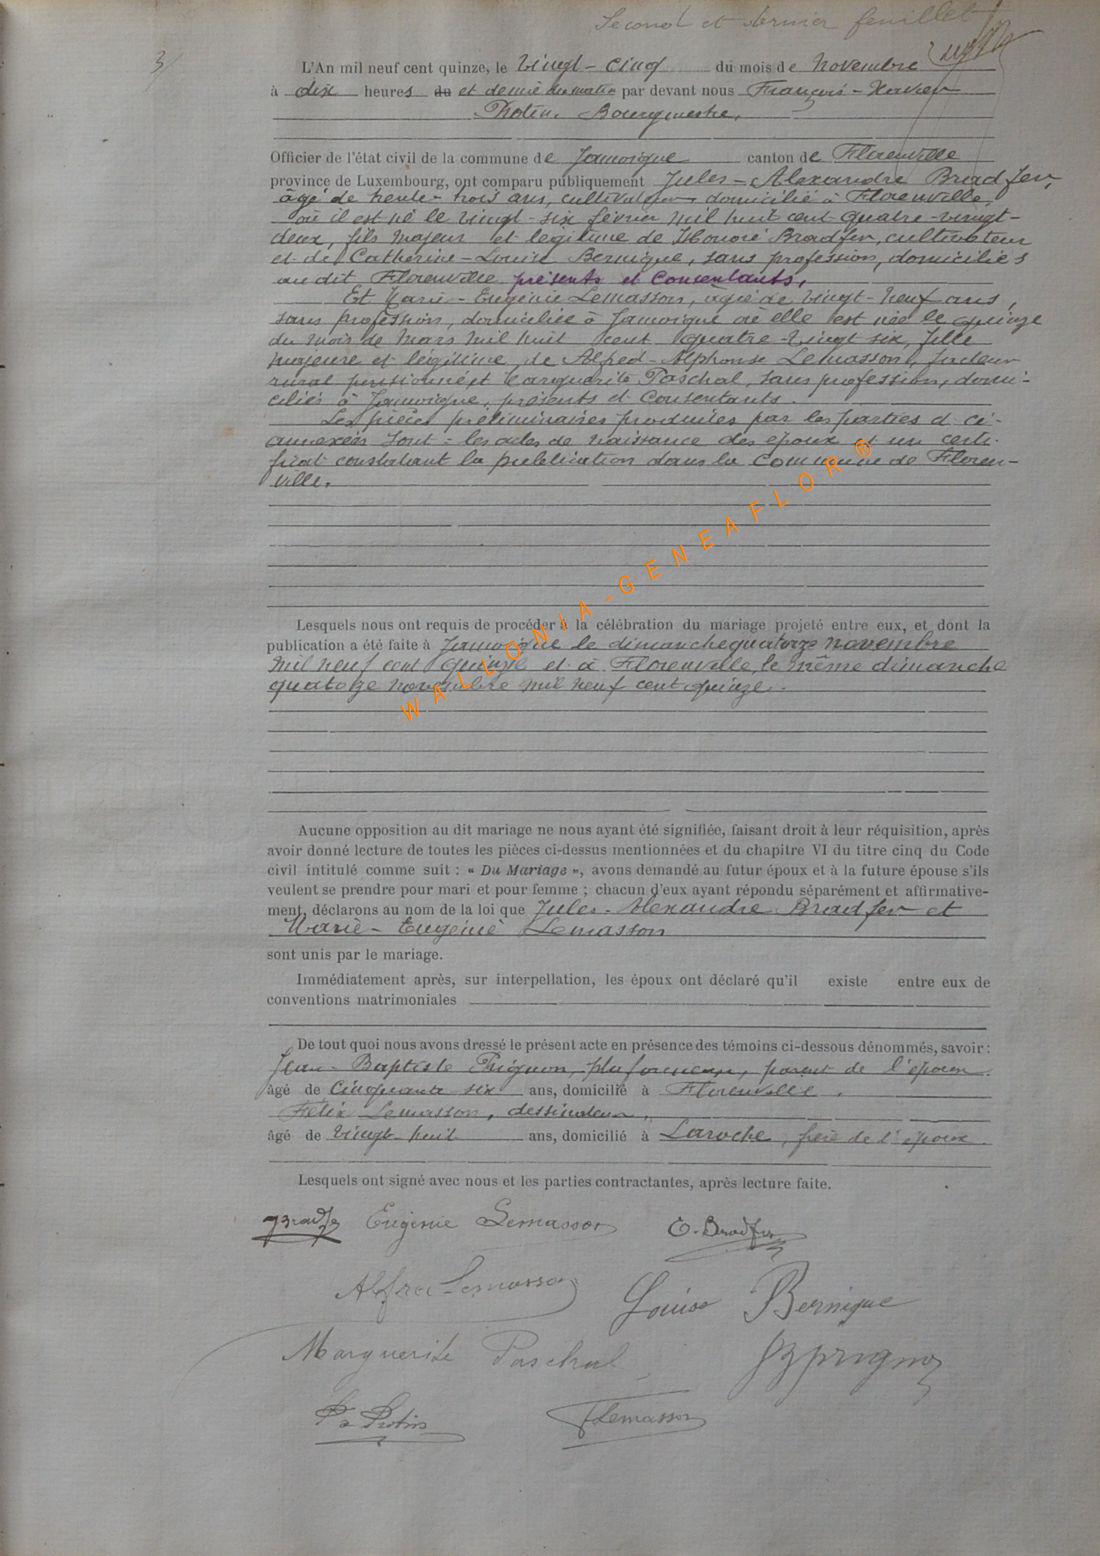 Second et dernier feuillet
3/
L'An mil neuf cent quinze, le vingt-cinq du mois de novembre
à dix heures du et demie du matin par devant nous François-Xavier
Protin, Bourgmestre,
Officier de l'état civil de la commune de Jamoigne canton de Florenville
province de Luxembourg, ont comparu publiquement Jules-Alexandre Bradfer,
âgé de trente-trois ans, cultivateur domicilié à Florenville,
où il est né le vingt-six février mil huit cent quatre-vingt-
deux, fils majeur et légitime de Honoré Bradfer, cultivateur
et de Catherine-Louise Bernique, sans profession, domiciliés
au dit Florenville présents et consentants,
Et Marie-Eugénie Lemasson, âgée de vingt-neuf ans,
sans profession, domiciliée à Jamoigne où elle est née le quinze
du mois de mars mil huit cent quatre-vingt six, fille
majeure et légitime de Alfred-Alphonse Lemasson, facteur
rural pensionné et Marguerite Paschal, sans profession, domi-
ciliés à Jamoigne, présents et consentants.
Les pièces préliminaires produites par les parties et ci-
annexées sont: les actes de naissance des époux et un certi-
ficat constatant la publication dans la commune de Floren-
ville.
Lesquels nous ont requis de procéder à la célébration du mariage projeté entre eux, et dont la
publication a été faite à Jamoigne le dimanche quatorze novembre
mil neuf cent quinze et à Florenville, le même dimanche
quatorze novembre mil neuf cent quinze.
Aucune opposition au dit mariage ne nous ayant été signifiée, faisant droit à leur réquisition, après
avoir donné lecture de toutes les pièces ci-dessus mentionnées et du chapitre VI du titre cinq du Code
civil intitulé comme suit : « Du Mariage », avons demandé au futur époux et à la future épouse s'ils
veulent se prendre pour mari et pour femme ; chacun d'eux ayant répondu séparément et affirmative-
ment, déclarons au nom de la loi que Jules-Alexandre Bradfer et
Marie-Eugénie Lemasson
sont unis par le mariage.
Immédiatement après, sur interpellation, les époux ont déclaré qu'il existe entre eux de
conventions matrimoniales
De tout quoi nous avons dressé le présent acte en présence des témoins ci-dessous dénommés, savoir :
Jean-Baptiste Prignon, plafonneur, parent de l'époux
âgé de cinquante six ans, domicilié à Florenville.
Félix Lemasson, dessinateur,
âgé de vingt-huit ans, domicilié à Laroche, frère de l'épouse
Lesquels ont signé avec nous et les parties contractantes, après lecture faite.
JBradfer Eugénie Lemasson Bradfer
Alfred Lemasson Louise Bernique
Marguerite Paschal JBprignon
Protin FLemasson
WALLONIA-GENEAFLOR®